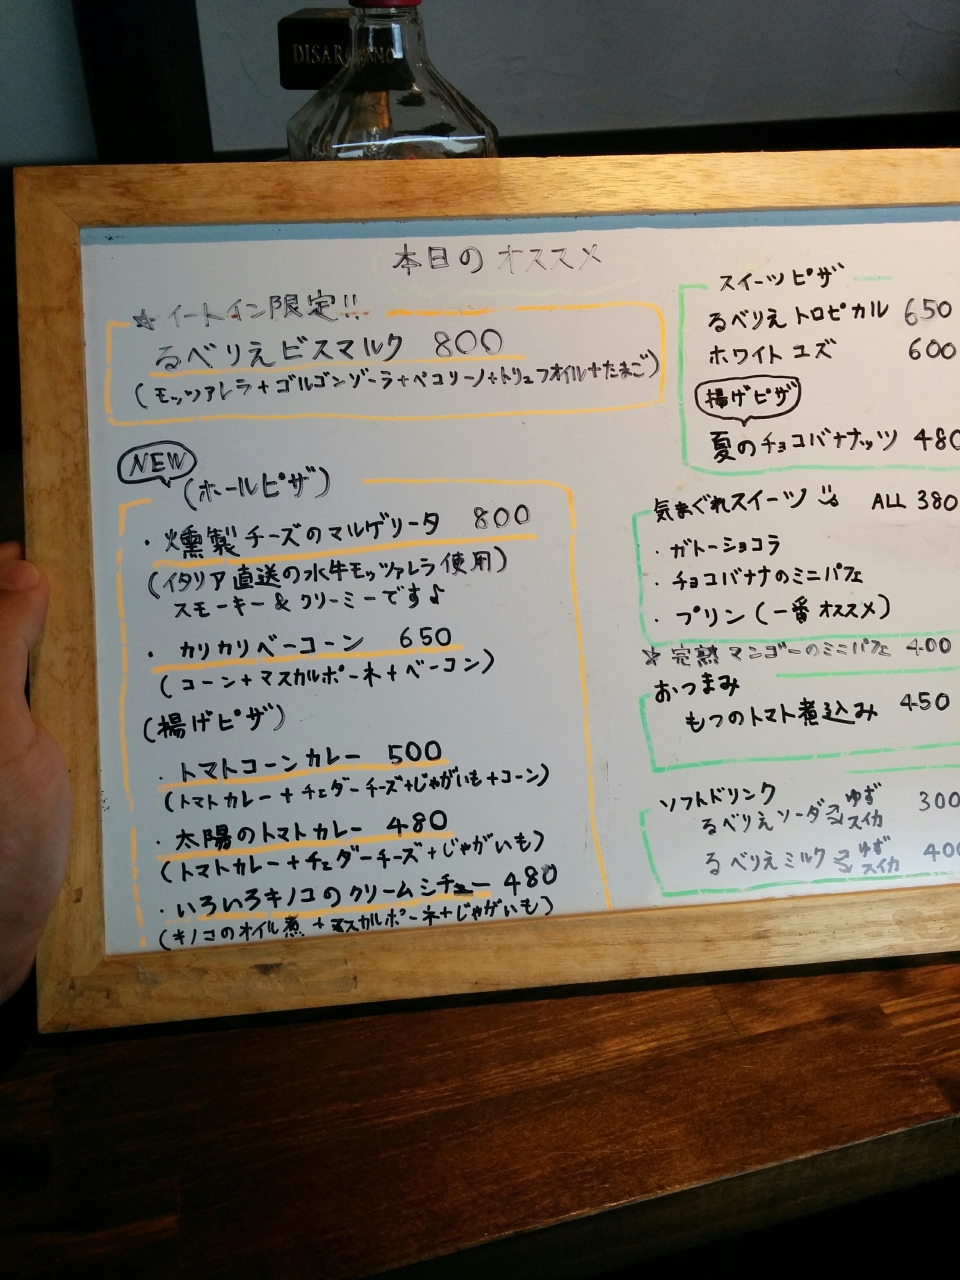 DISARONNO
本日のオススメ
☆イートイン限定!!
るべりえビスマルク 800
(モッツァレラ+ゴルゴンゾーラ+ペコリーノ+トリュフオイル+たまご)
NEW
(ホールピザ)
・燻製チーズのマルゲリータ 800
(イタリア直送の水牛モッツァレラ使用)
スモーキー&クリーミーです♪
・カリカリベーコーン 650
(コーン+マスカルポーネ+ベーコン)
(揚げピザ)
・トマトコーンカレー 500
(トマトカレー+チェダーチーズ+じゃがいも+コーン)
・太陽のトマトカレー 480
(トマトカレー+チェダーチーズ+じゃがいも)
・いろいろキノコのクリームシチュー 480
(キノコのオイル煮+マスカルポーネ+じゃがいも)
スイーツピザ
るべりえトロピカル 650
ホワイトユズ 600
揚げピザ
夏のチョコバナナッツ 480
気まぐれスイーツ ALL 380
・ガトーショコラ
・チョコバナナのミニパフェ
・プリン(一番オススメ)
☆完熟マンゴーのミニパフェ 400
おつまみ
もつのトマト煮込み 450
ソフトドリンク
るべりえソーダ ゆず スイカ 300
るべりえミルク ゆず スイカ 400